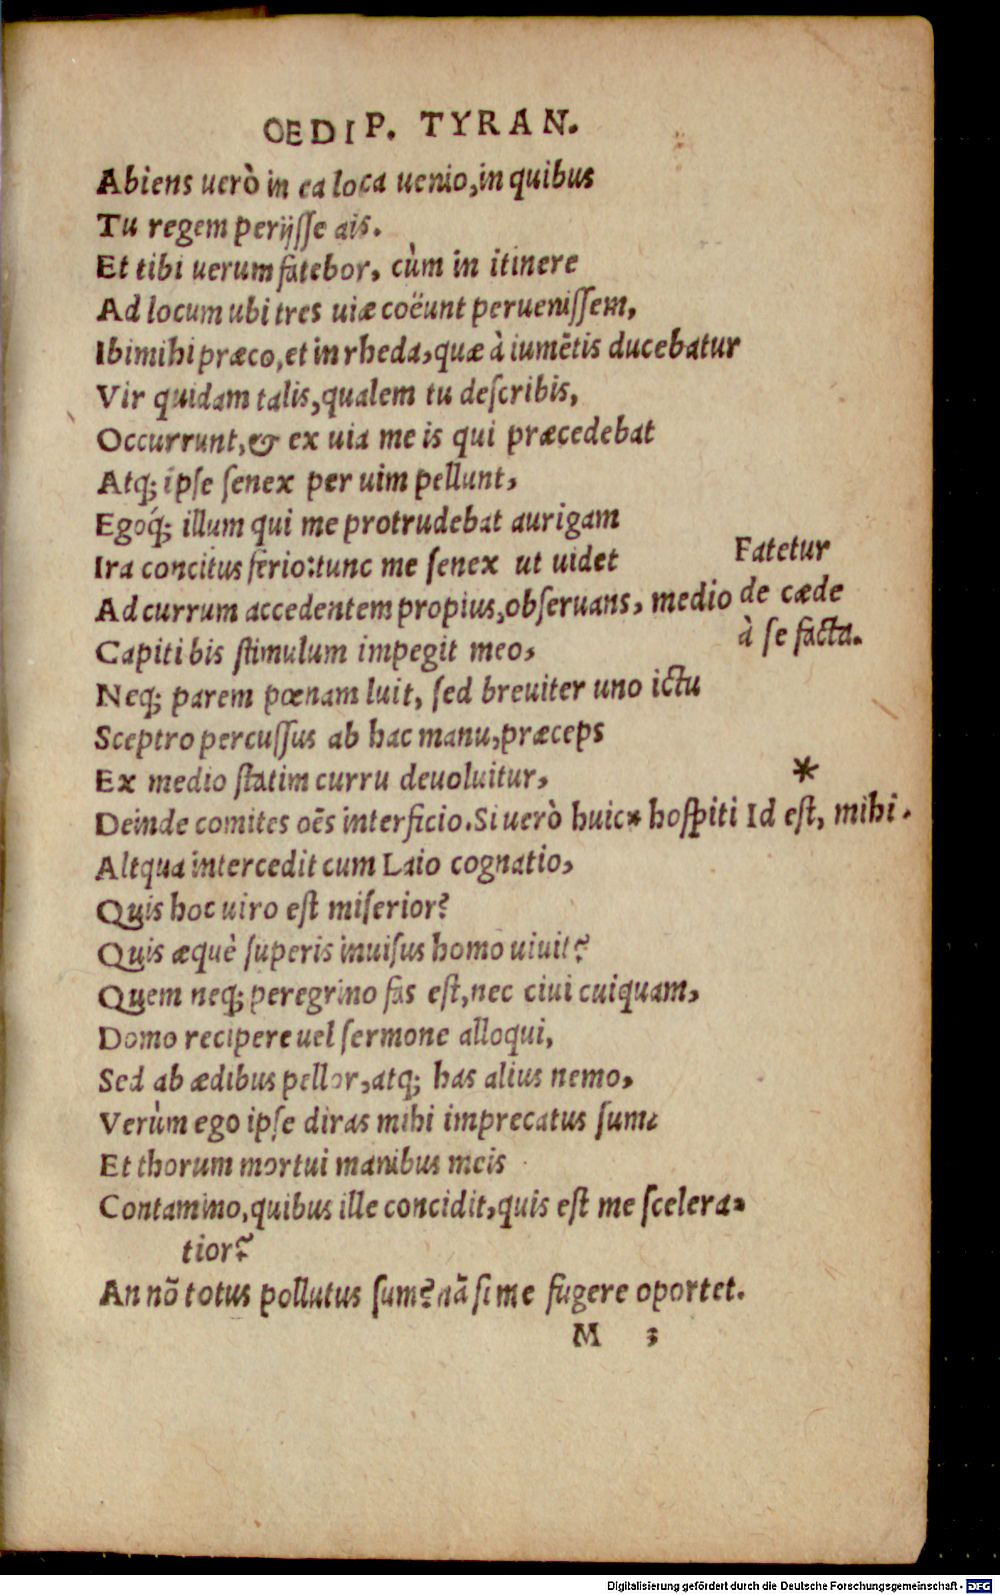 OEDIP. TYRAN.
Abiens uerò in ea loca uenio, in quibus
Tu regem perijsse ais.
Et tibi uerum fatebor, cùm in itinere
Ad locum ubi tres uiæ coëunt peruenissem,
Ibi mihi præco, et in rheda, quæ à iumētis ducebatur
Vir quidam talis, qualem tu describis,
Occurrunt, & ex uia me is qui præcedebat
Atq; ipse senex per uim pellunt,
Egoq́; illum qui me protrudebat aurigam
Ira concitus ferio: tunc me senex ut uidet
Ad currum accedentem propius, obseruans, medio
Capiti bis stimulum impegit meo,
Neq; parem pœnam luit, sed breuiter uno ictu
Sceptro percussus ab hac manu, præceps
Ex medio statim curru deuoluitur,
Deinde comites oēs interficio. Si uerò huic* hospiti
Altqua intercedit cum Laio cognatio,
Quis hoc uiro est miserior?
Quis æquè superis inuisus homo uiuit?
Quem neq; peregrino fas est, nec ciui cuiquam,
Domo recipere uel sermone alloqui,
Sed ab ædibus pellor, atq; has alius nemo,
Verùm ego ipse diras mihi imprecatus sum:
Et thorum mortui manibus meis
Contamino, quibus ille concidit, quis est me scelera-
tior?
An nō totus pollutus sum? nā si me fugere oportet.
M 3
Fatetur
de cæde
à se facta.
*
Id est, mihi.
Digitalisierung gefördert durch die Deutsche Forschungsgemeinschaft - DFG